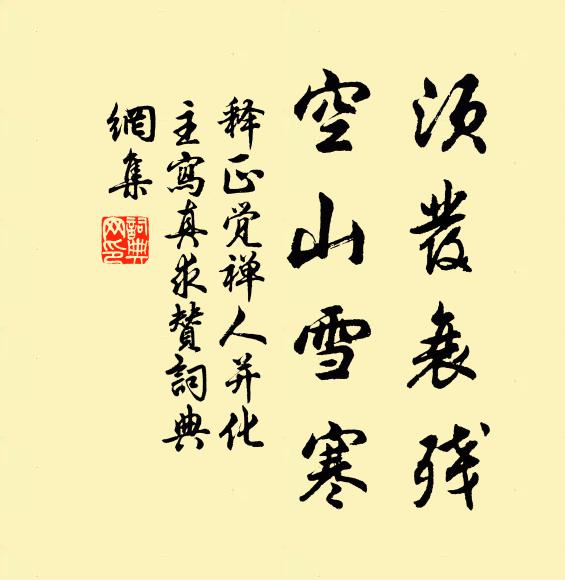 须发衰残
空山雪寒
释正觉禅人并化
主写真求赞词典
网集
詞典
网印